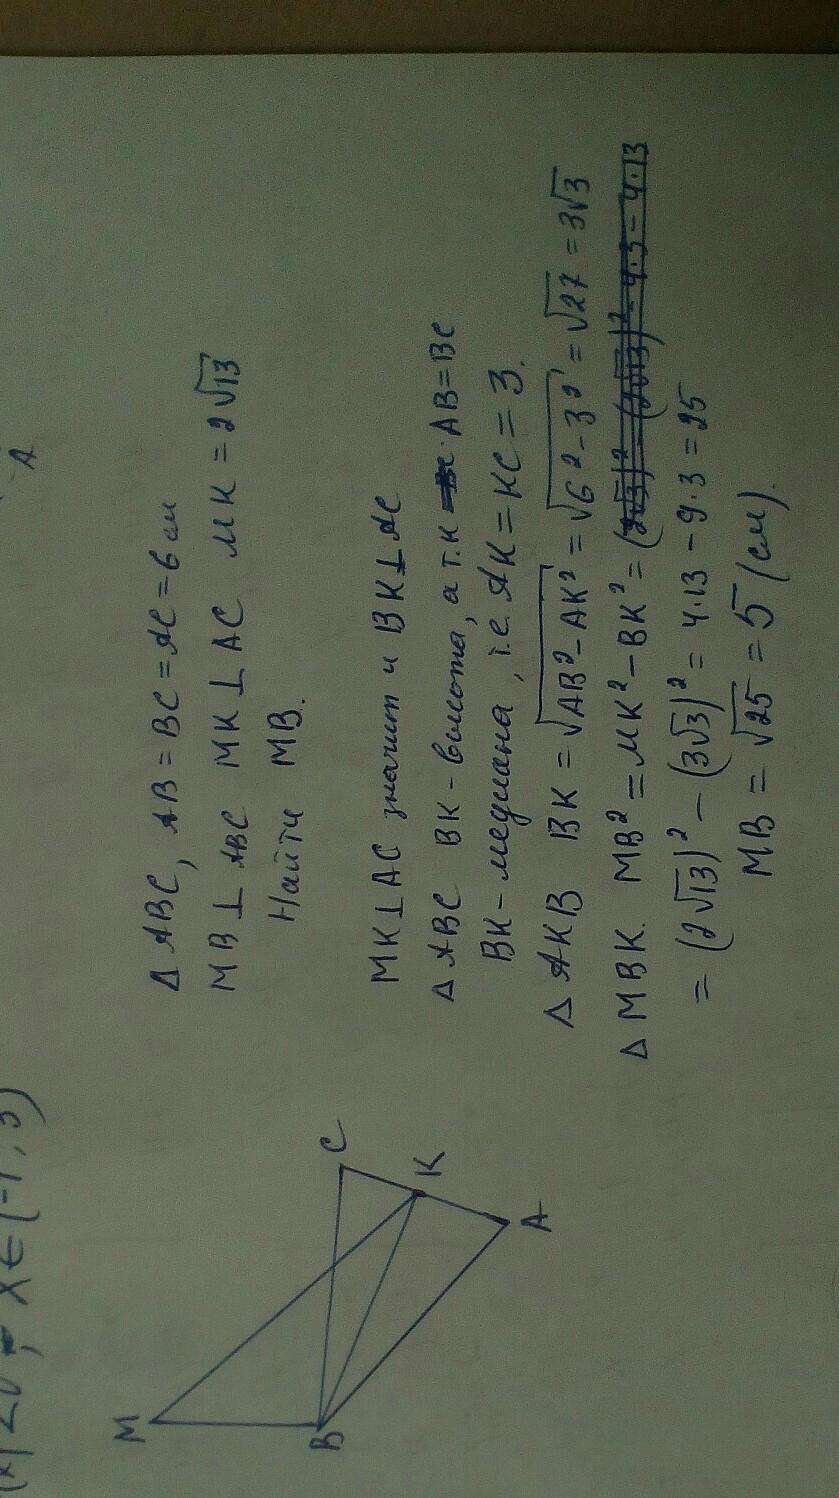 (x) ≤0; x ∈ (-1; 3)
A
M
B
C
K
A
Δ ABC, AB = BC = AC = 6 см
MB ⊥ ABC MK ⊥ AC MK = 2√13
Найти MB.
MK ⊥ AC значит и BK ⊥ AC
Δ ABC BK - высота, а т.к AB = BC
BK - медиана, т.е. AK = KC = 3.
Δ AKB BK = √AB² - AK² = √6² - 3² = √27 = 3√3
Δ MBK. MB² = MK² - BK² = (2√3)² - (2√13)² = 4·3 - 4·13
= (2√13)² - (3√3)² = 4·13 - 9·3 = 25
MB = √25 = 5 (см).